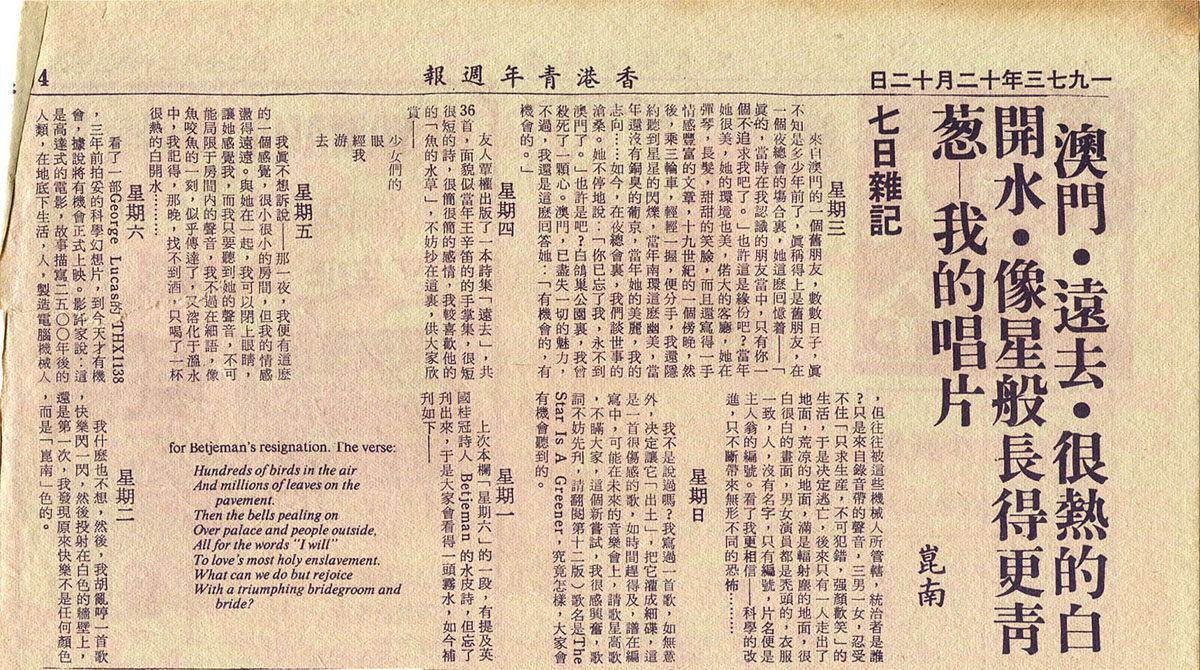 一九七三年十二月十二日
香港青年週報
4
澳門・遠去・很熱的白
開水・像星般長得更青
葱——我的唱片
崑南
七日雜記
星期三
來自澳門的一個舊朋友,數數日子,眞
不知是多少年前了,眞稱得上是舊朋友,在
一個夜總會的塲合裏,她這麽囘憶着——「
眞的,當時在我認識的朋友當中,只有你一
個不追求我吧了。」也許這是緣份吧?當年
她很美,她的環境也美,偌大的客廳,她在
彈琴,長髮,甜甜的笑臉,而且還寫得一手
情感豐富的文章,十九世紀的一個傍晚,然
後,乘三輪車,輕輕一握,便分手,我還隱
約聽到星星的閃爍,當年南環這麽幽美,當
年還沒有銅臭的葡京,當年她的美麗,我的
志向……如今,在夜總會裏,我們談世事的
滄桑。她不停地說:「你已忘了我,永不到
澳門了。」也許是吧?白鴿巢公園裏,我曾
殺死了一顆心。澳門,已盡失一切的魅力,
不過,我還是這麽囘答她:「有機會的,有
機會的。」
星期四
友人覃權出版了一本詩集「遠去」,共
36首,面貌似當年王辛笛的手掌集,很短
很短的詩,很簡很簡的感情,我較喜歡他的
的「魚的水草」,不妨抄在這裏,供大家欣
賞——
少女們的
眼
經我
游
去
星期五
我眞不想訴說——那一夜,我便有這麽
的一個感覺,很小很小的房間,但我的情感
盪得遠遠。與她在一起,我可以閉上眼睛,
讓她感覺我,而我只要聽到她的聲音,不可
能局限于房間內的聲音,我不過在細語,像
魚咬魚的一刻,似乎傳達了,又溶化于溫水
中,我記得,那晚,找不到酒,只喝了一杯
很熱的白開水………
星期六
看了一部George Lucas的「THX1138
,三年前拍妥的科學幻想片,到今天才有機
會,據說將有機會正式上映。影評家說:這
是高達式的電影,故事描寫二五〇〇年後的
人類,在地底下生活,人,製造電腦機械人
,但往往被這些機械人所管轄,統治者是誰
?只是來自錄音帶的聲音,三男一女,忍受
不住「只求生產,不可犯錯,强顏歡笑」的
生活,于是决定逃亡,後來只有一人走出了
地面,荒凉的地面,滿是輻射塵的地面,很
白很白的畫面,男女演員都是禿頭的,衣服
一致,人,沒有名字,只有編號,片名便是
主人翁的編號。看了我更相信——科學的改
進,只不斷帶來無形不同的恐怖………
星期日
我不是說過嗎?我寫過一首歌,如無意
外,决定讓它「出土」,把它灌成細碟,這
是一首很傷感的歌,如時間趕得及,譜在編
寫中,可能在未來的音樂會上,請歌星高歌
,不瞞大家,這個新嘗試,我很感興奮,歌
詞不妨先刋,請翻閱第十二版︶歌名是「The
Star Is A Greener,究竟怎樣,大家會
有機會聽到的。
星期一
上次本欄「星期六」的一段,有提及英
國桂冠詩人 Betjeman 的水皮詩,但忘了
刋出來,于是大家會看得一頭霧水,如今補
刋如下——
for Betjeman's resignation. The verse:
Hundreds of birds in the air
And millions of leaves on the
pavement.
Then the bells pealing on
Over palace and people outside,
All for the words "I will"
To love's most holy enslavement.
What can we do but rejoice
With a triumphing bridegroom and
bride?
星期二
我什麽也不想,然後,我胡亂哼一首歌
,快樂閃一閃,然後投射在白色的牆壁上,
還是第一次,我發現原來快樂不是任何顏色
,而是「崑南」色的。